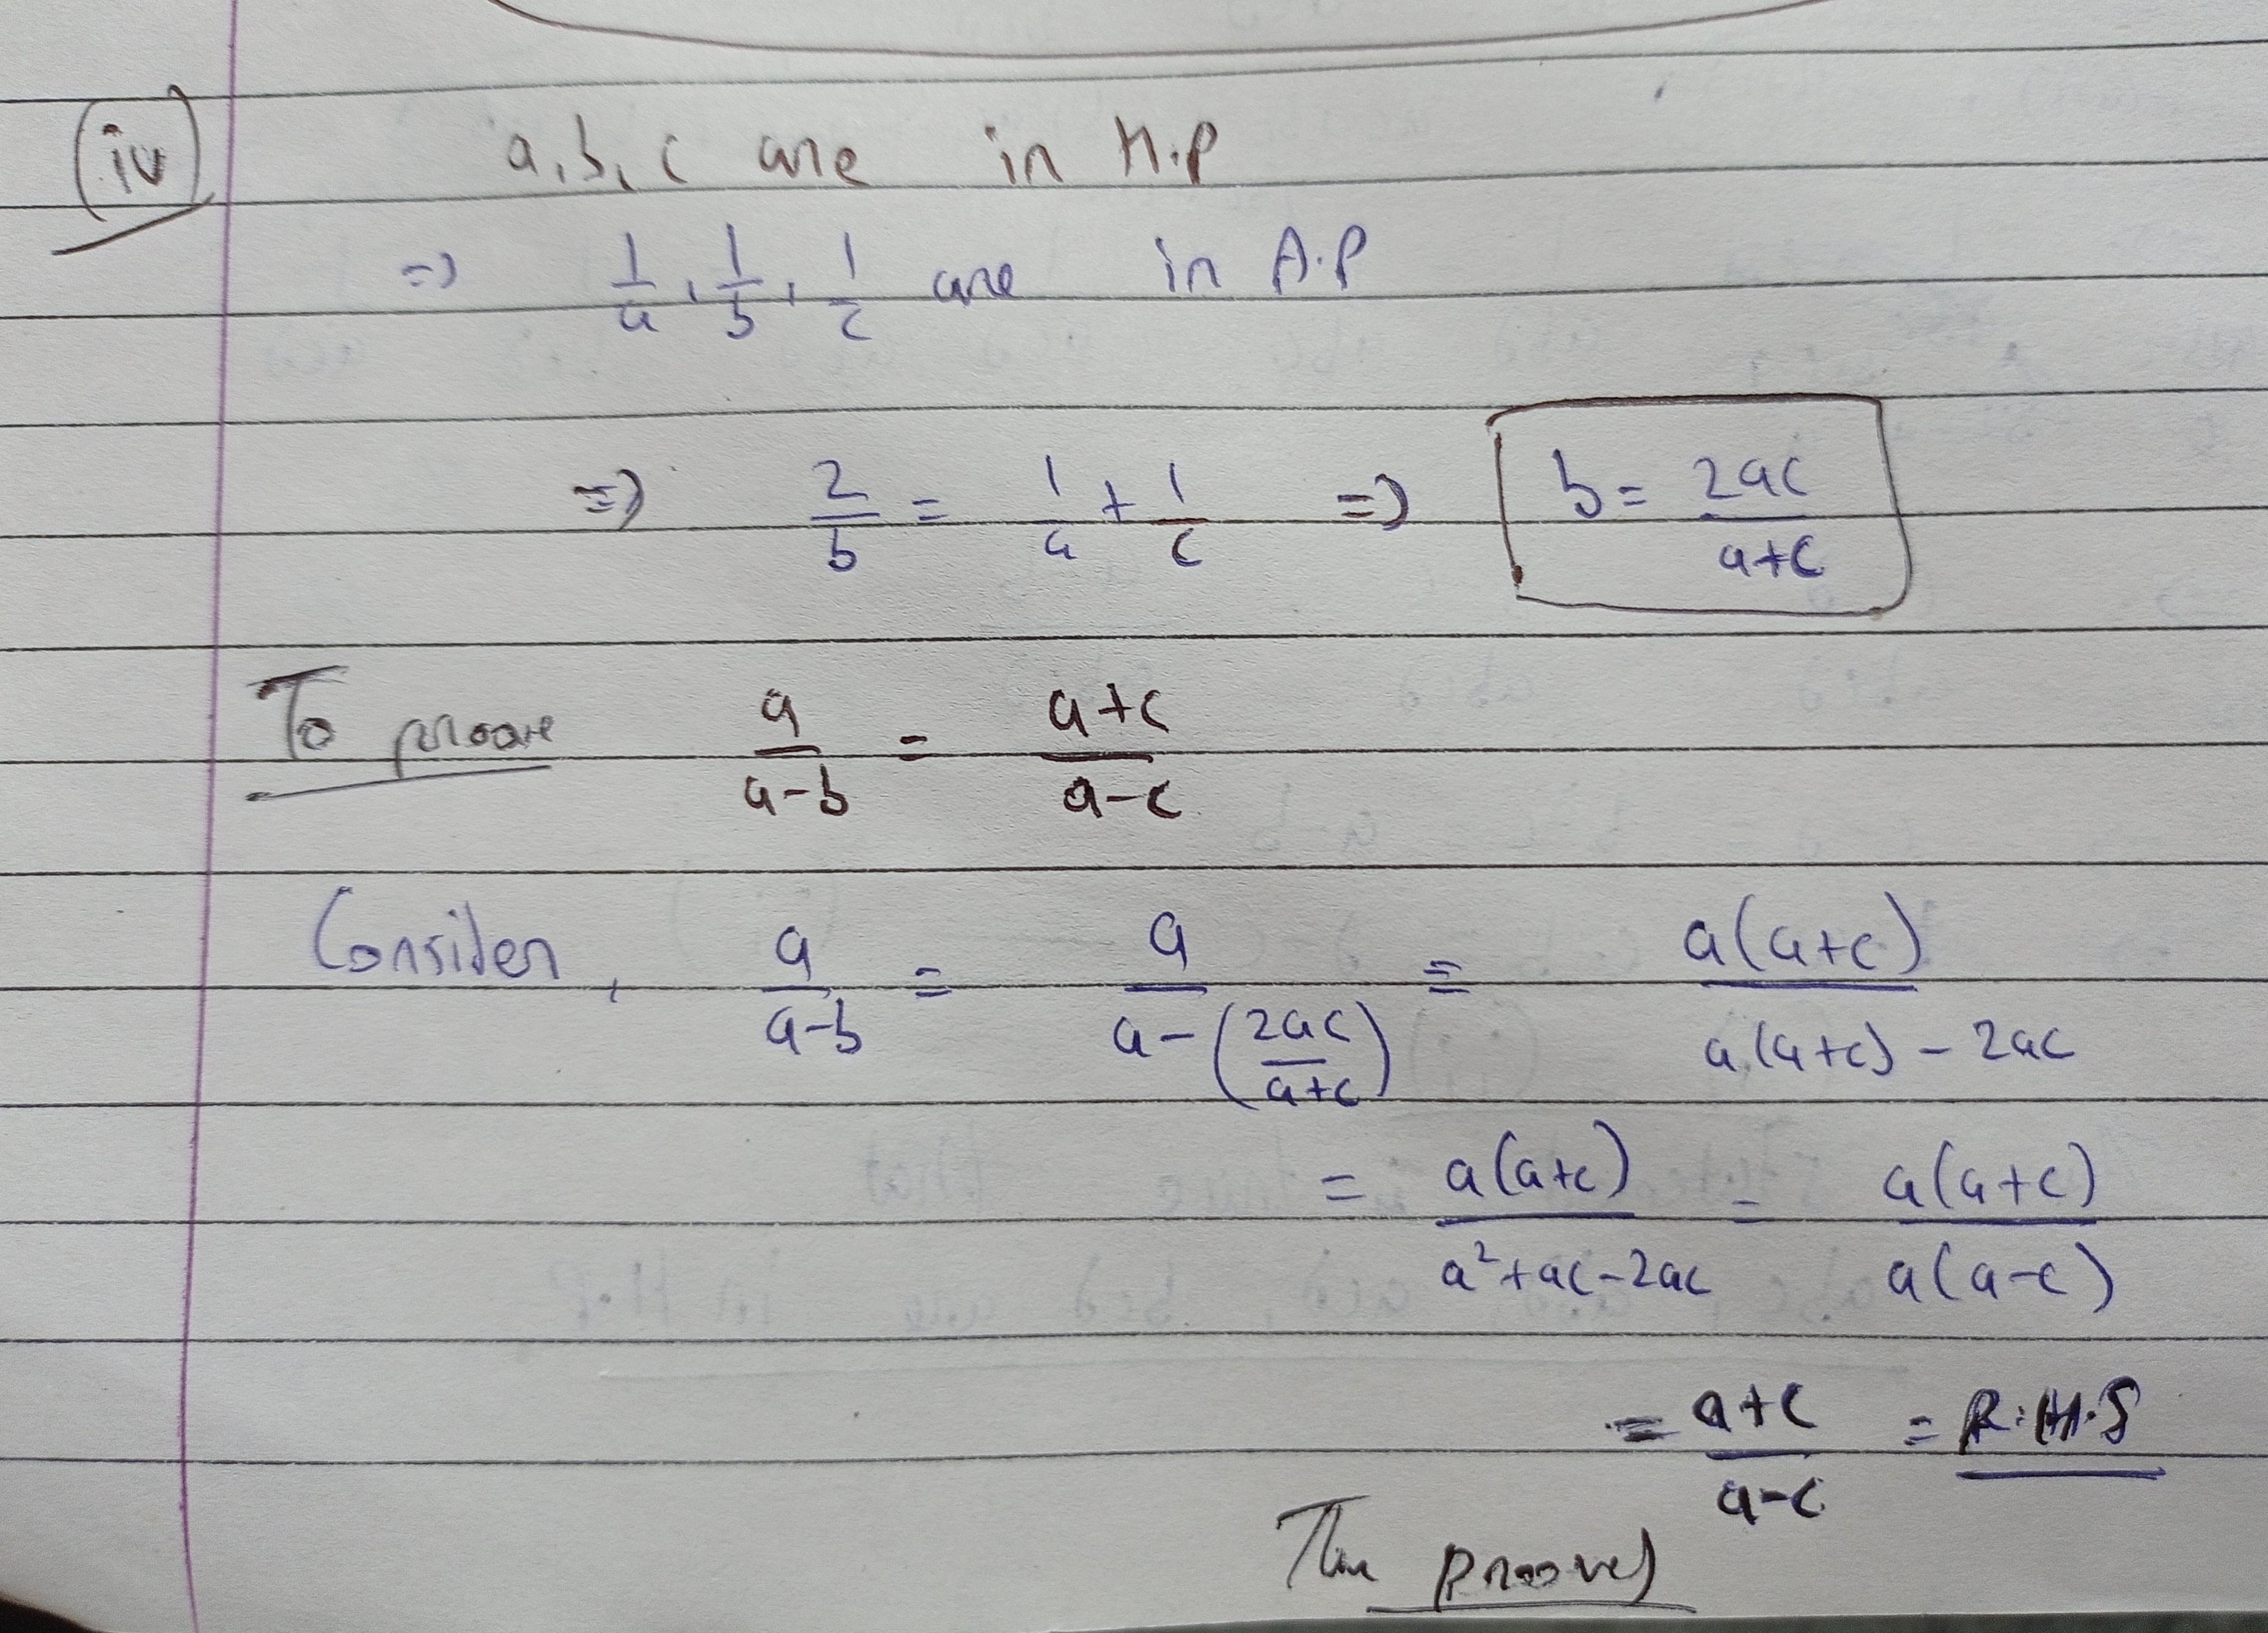 (iv) a, b, c are in H.P
=> 1/a, 1/b, 1/c are in A.P
=> 2/b = 1/a + 1/c => b = 2ac/(a+c)
To proove a/(a-b) = (a+c)/(a-c)
Consider, a/(a-b) = a/(a-(2ac/(a+c))) = a(a+c)/(a(a+c) - 2ac)
= a(a+c)/(a²+ac-2ac) = a(a+c)/(a(a-c))
= (a+c)/(a-c) = R.H.S
prooved